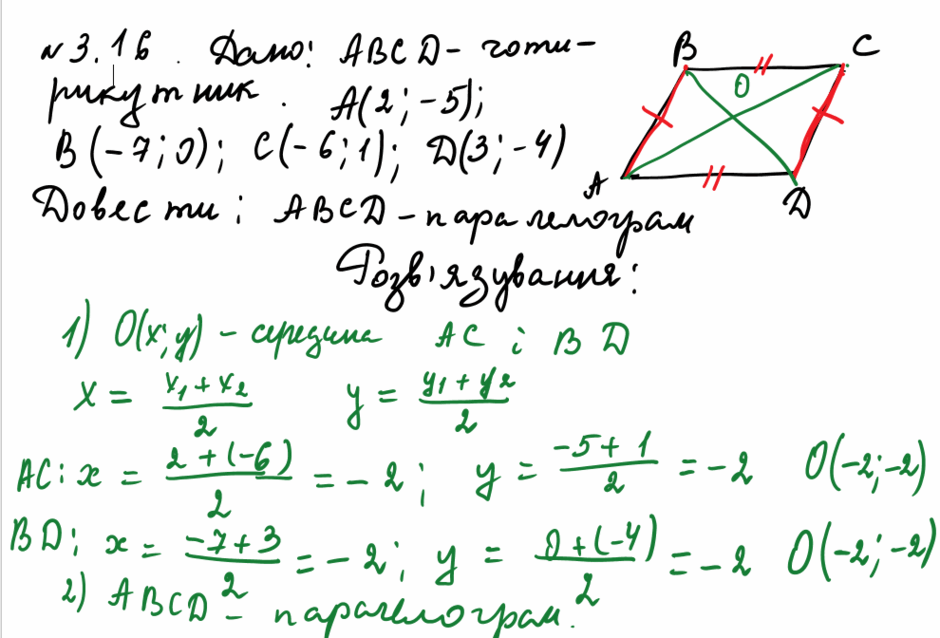 №3.16. Дано: ABCD - чоти-
рикутник. A(2;-5);
B(-7;0); C(-6;1); D(3;-4)
Довести: ABCD - паралелограм
Розв'язування:
B C
O
A D
1) O(x;y) - середина AC і BD
x = (x₁ + x₂)/2 y = (y₁ + y₂)/2
AC: x = (2 + (-6))/2 = -2; y = (-5 + 1)/2 = -2 O(-2;-2)
BD: x = (-7 + 3)/2 = -2; y = (0 + (-4))/2 = -2 O(-2;-2)
2) ABCD - паралелограм.